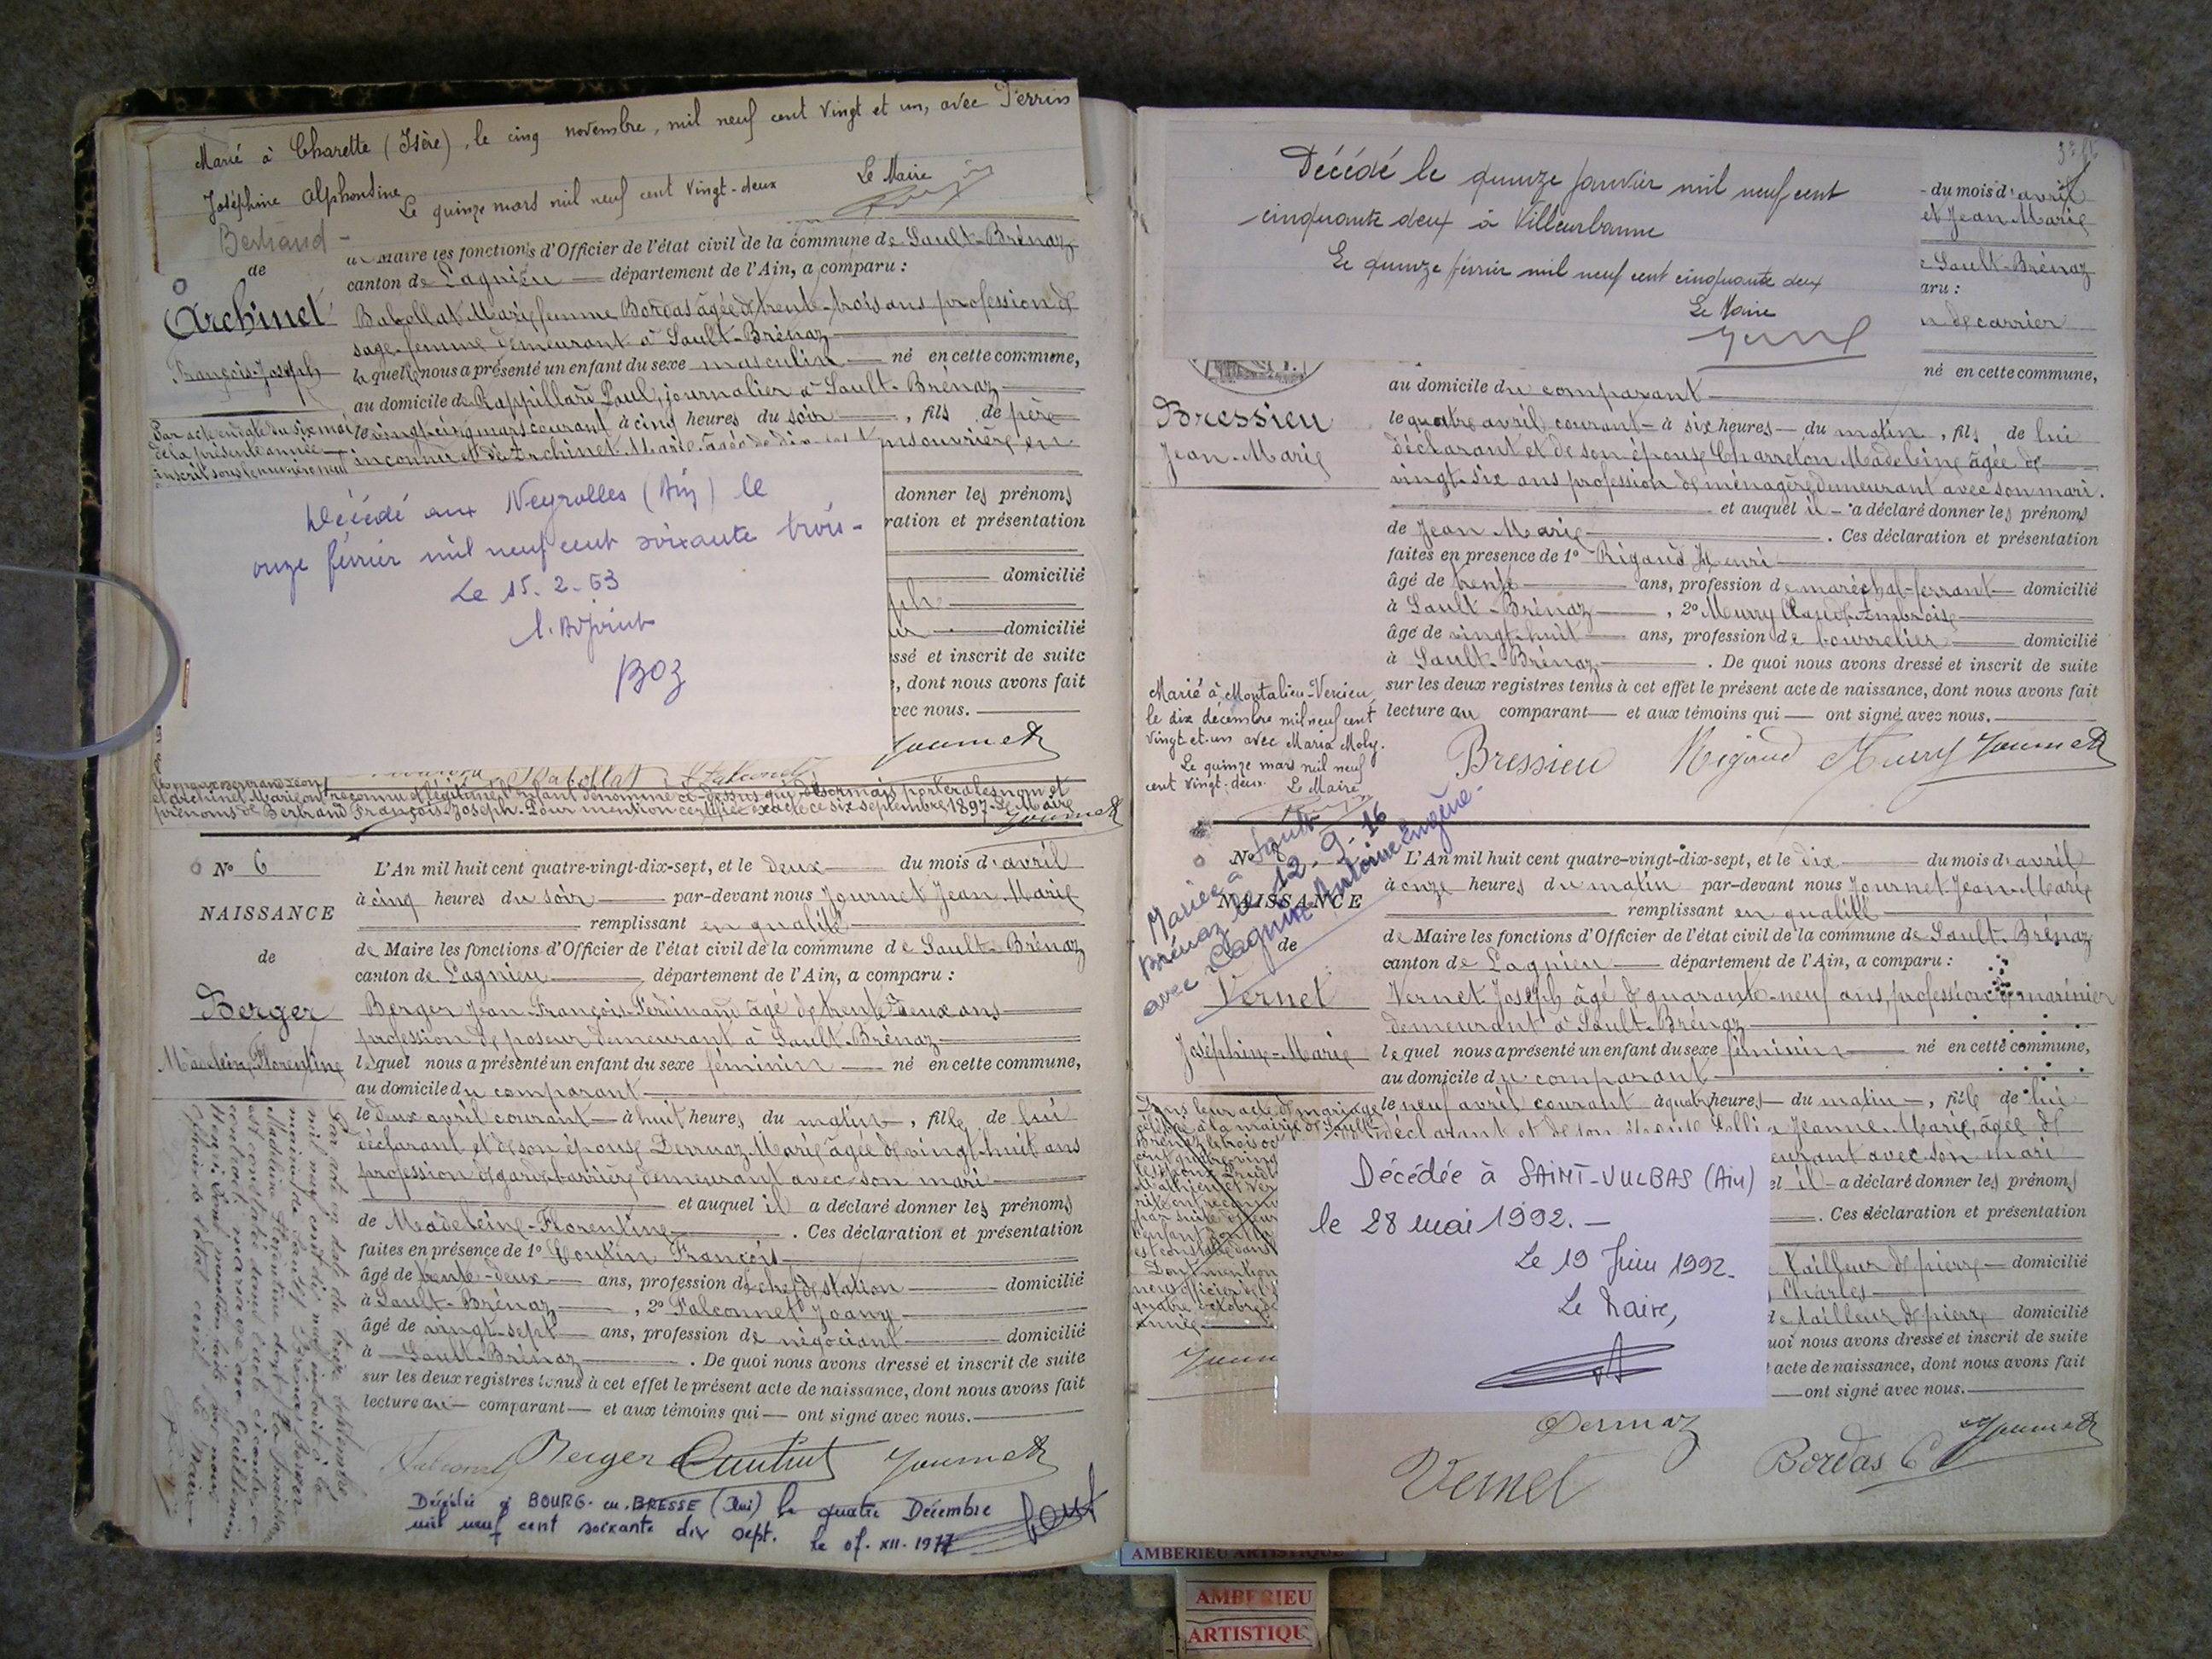 Marié à Charette (Isère), le cinq novembre, mil neuf cent vingt et un, avec Perrin
Joséphine Alphonsine
Le quinze mars mil neuf cent vingt-deux
Le Maire
Bertrand
de Maire les fonctions d'Officier de l'état civil de la commune de Sault-Brénaz
de
canton de Lagnieu département de l'Ain, a comparu :
Archinet
Babollat Marie femme Bordas âgée de trente-trois ans profession de
sage-femme demeurant à Sault-Brénaz
François-Joseph
laquelle nous a présenté un enfant du sexe masculin né en cette commune,
au domicile de Rappillard Paul, journalier à Sault-Brénaz
Par acte en date du six mai
le vingt-cinq mars courant à cinq heures du soir, fils de père
de la présente année
inconnu et de Archinet Marie âgée de
ouvrière en
inscrit sous le numéro neuf
Décédé aux Neyrolles (Ain) le
onze février mil neuf cent soixante trois-
Le 15.2.63
l'Adjoint
BOZ
donner les prénoms
ration et présentation
domicilié
domicilié
ssé et inscrit de suite
, dont nous avons fait
vec nous.
Journet
Babollat
reconnu et légitimé l'enfant dénommé ci-dessus qui désormais portera les nom et
prénoms de Bertrand François-Joseph. Pour mention certifiée exacte ce six septembre 1897. Le Maire
Journet
No 6
L'An mil huit cent quatre-vingt-dix-sept, et le deux du mois d'avril
à cinq heures du soir par-devant nous Journet Jean-Marie
NAISSANCE
remplissant en qualité
de
de Maire les fonctions d'Officier de l'état civil de la commune de Sault-Brénaz
canton de Lagnieu département de l'Ain, a comparu :
Berger
Berger Jean-François-Ferdinand âgé de trente-deux ans
profession de poseur demeurant à Sault-Brénaz
Madeleine Florentine
lequel nous a présenté un enfant du sexe féminin né en cette commune,
au domicile du comparant
le deux avril courant à huit heures du matin, fille de lui
déclarant et de son épouse Dernaz Marie âgée de vingt-huit ans
profession de garde-barrière demeurant avec son mari
et auquel il a déclaré donner les prénoms
de Madeleine-Florentine. Ces déclaration et présentation
faites en présence de 1o Coutin François
âgé de trente-deux ans, profession de chef de station domicilié
à Sault-Brénaz, 2o Falconnet Joany
âgé de vingt-sept ans, profession de négociant domicilié
à Sault-Brénaz. De quoi nous avons dressé et inscrit de suite
sur les deux registres tenus à cet effet le présent acte de naissance, dont nous avons fait
lecture au comparant et aux témoins qui ont signé avec nous.
Berger
Journet
Décédée à BOURG-en-BRESSE (Ain) le quatre Décembre
mil neuf cent soixante dix sept.
Décédé le quinze janvier mil neuf cent
cinquante deux à Villeurbanne
Le quinze février mil neuf cent cinquante deux
Le Maire
du mois d'avril
et Jean-Marie
Sault-Brénaz
aru :
de carrier
né en cette commune,
au domicile du comparant
Bressieu
le quatre avril courant à six heures du matin, fils de lui
Jean-Marie
déclarant et de son épouse Charreton Madeleine âgée de
vingt-six ans profession de ménagère demeurant avec son mari.
et auquel il a déclaré donner les prénoms
de Jean Marie. Ces déclaration et présentation
faites en présence de 1o Rigaud Henri
âgé de trente ans, profession de maréchal-ferrant domicilié
à Sault-Brénaz, 2o Murry Claude-Ambroise
âgé de vingt-huit ans, profession de bourrelier domicilié
à Sault-Brénaz. De quoi nous avons dressé et inscrit de suite
sur les deux registres tenus à cet effet le présent acte de naissance, dont nous avons fait
lecture au comparant et aux témoins qui ont signé avec nous.
Marié à Montalieu-Vercieu
le dix décembre mil neuf cent
vingt et un avec Maria Moly.
Le quinze mars mil neuf
cent vingt-deux. Le Maire
Bressieu Rigaud Murry Journet
Mariée à Sault-
Brénaz le 12-9-16
avec Antoine Eugène.
No
L'An mil huit cent quatre-vingt-dix-sept, et le dix du mois d'avril
à onze heures du matin par-devant nous Journet Jean-Marie
NAISSANCE
remplissant en qualité
de
de Maire les fonctions d'Officier de l'état civil de la commune de Sault-Brénaz
canton de Lagnieu département de l'Ain, a comparu :
Vernet
Vernet Joseph âgé de quarante-neuf ans, profession de marinier
demeurant à Sault-Brénaz
Joséphine-Marie
lequel nous a présenté un enfant du sexe féminin né en cette commune,
au domicile du comparant
Dans leur acte de mariage
le neuf avril courant à quatre heures du matin, fille de lui
déclarant et de son épouse
Jeanne-Marie, âgée de
eurant avec son mari
il a déclaré donner les prénoms
. Ces déclaration et présentation
tailleur de pierre domicilié
Charles
de tailleur de pierre domicilié
uoi nous avons dressé et inscrit de suite
acte de naissance, dont nous avons fait
ont signé avec nous.
Décédée à SAINT-VULBAS (Ain)
le 28 mai 1992.-
Le 19 Juin 1992.
Le Maire,
Dernaz
Vernet
Bordas C
Journet
AMBERIEU ARTISTIQUE
AMBERIEU
ARTISTIQU